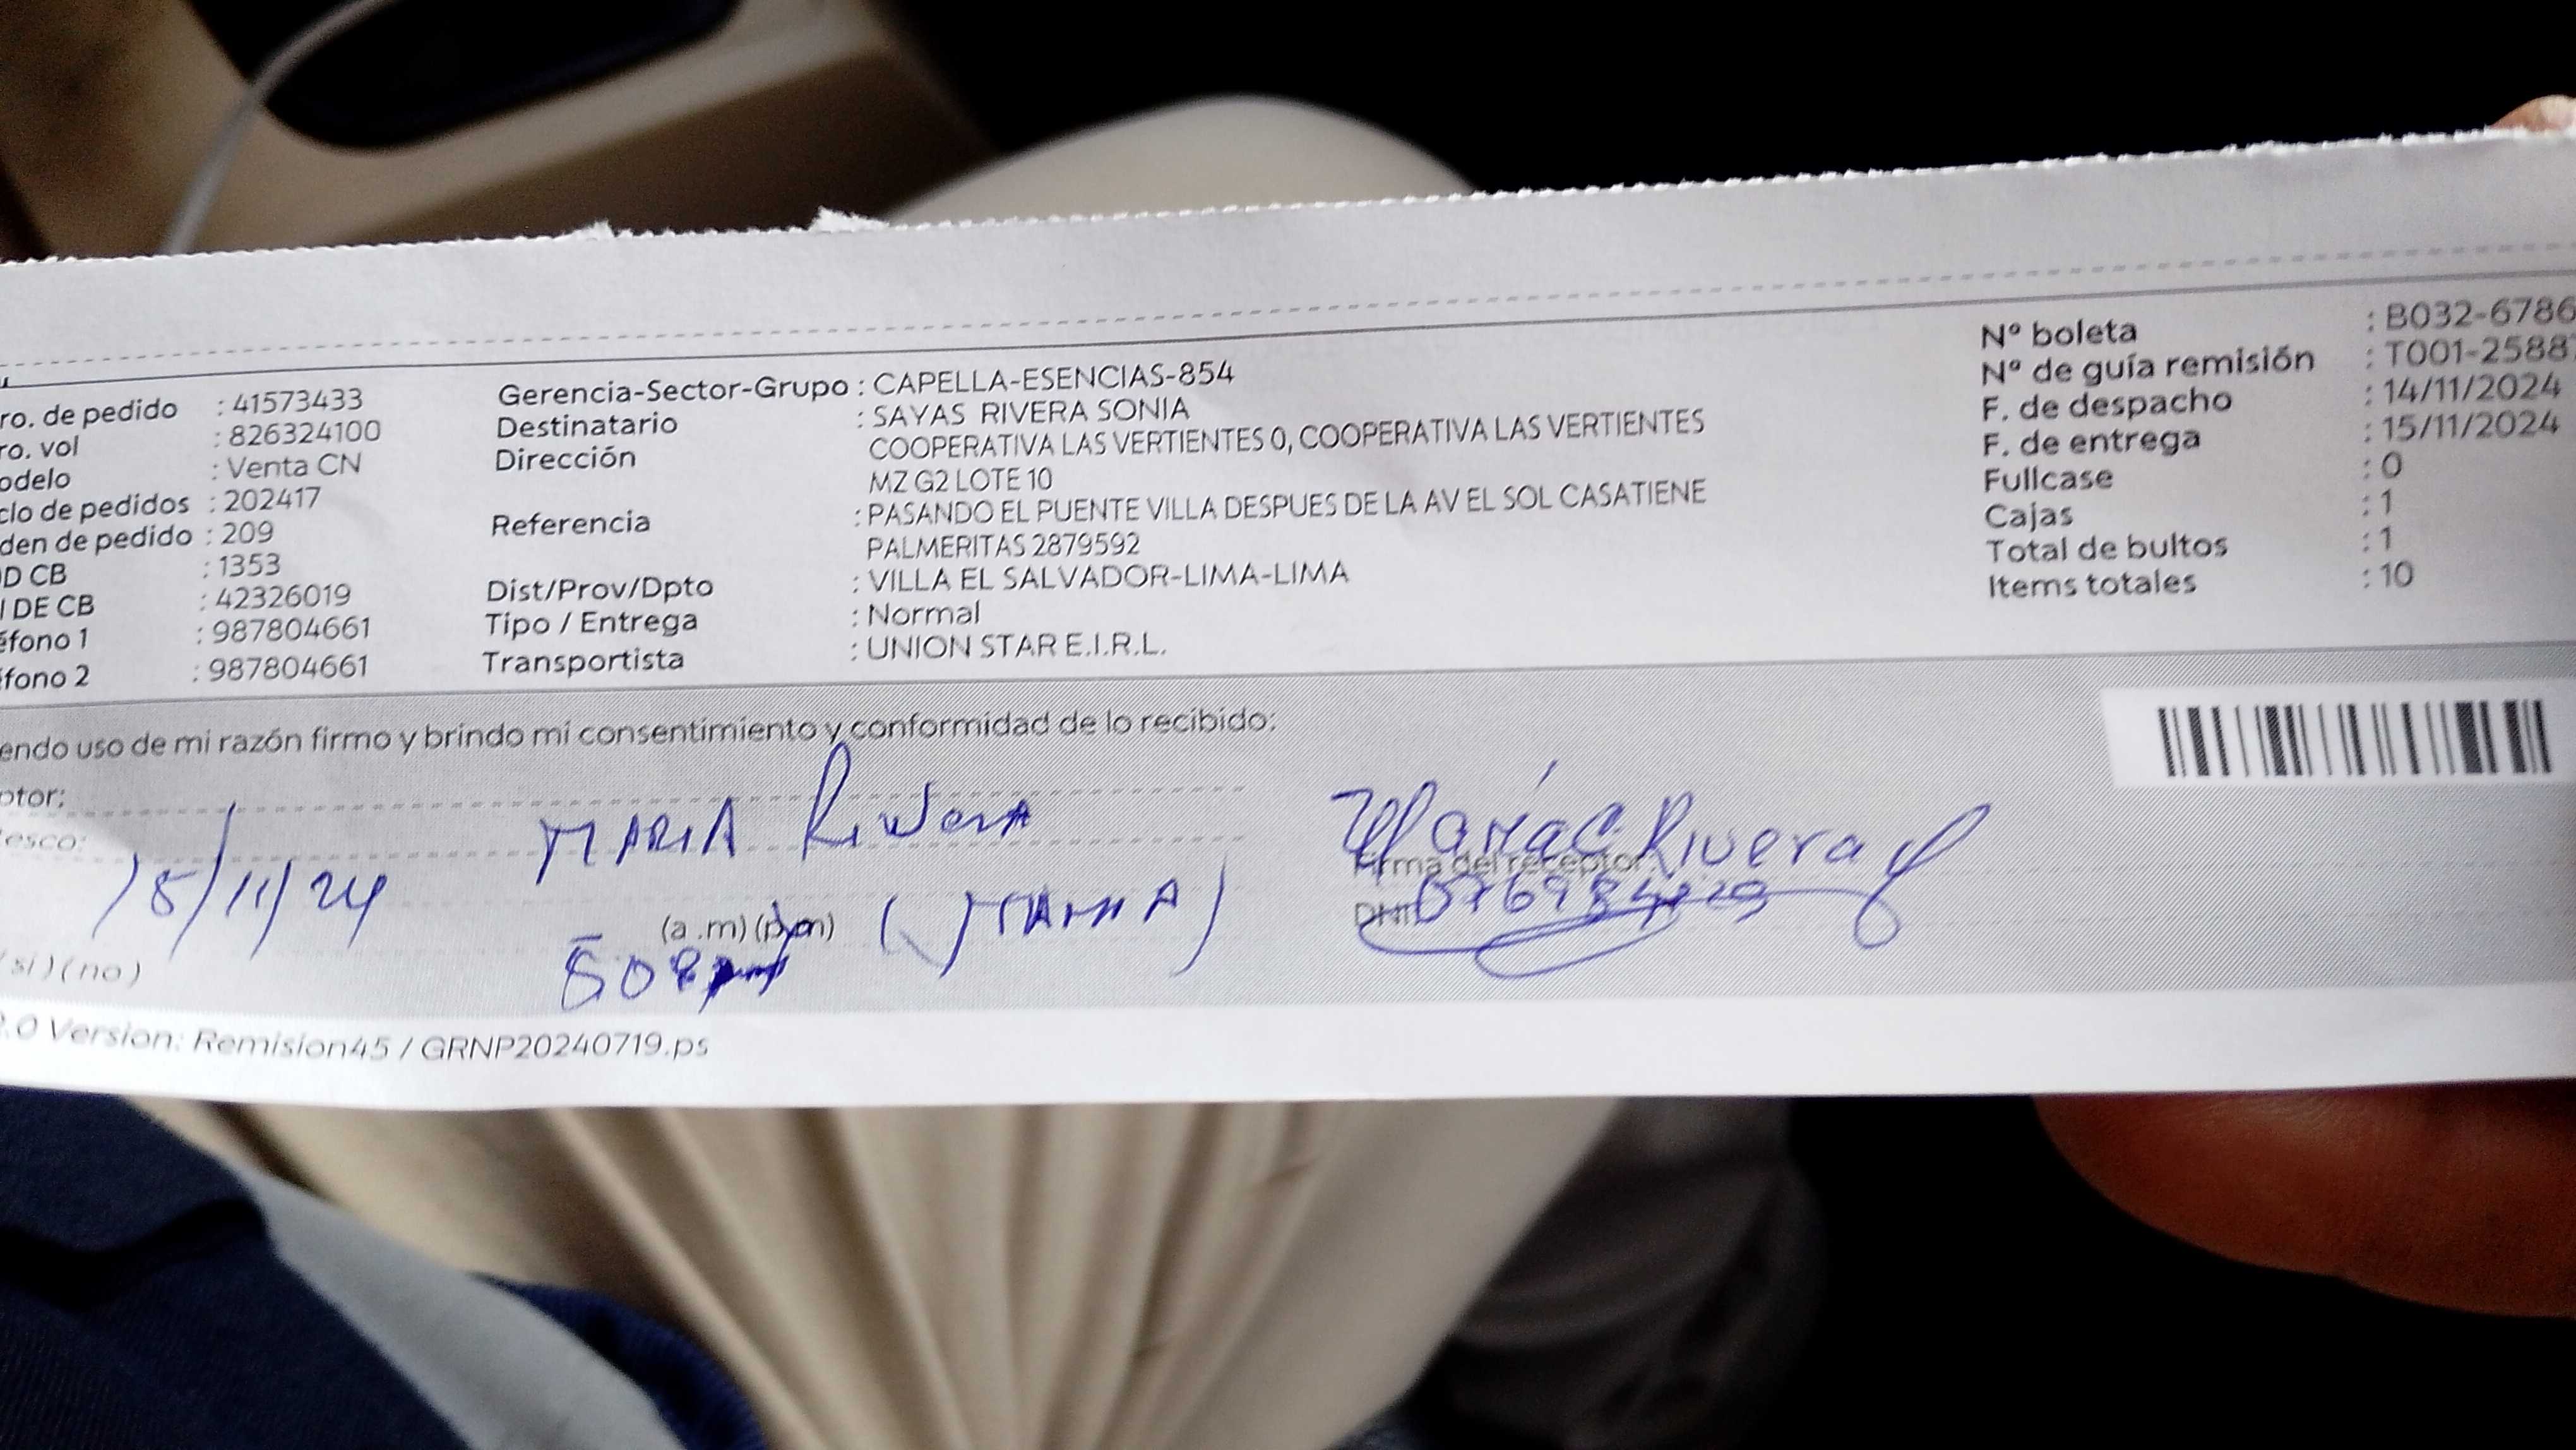 ro. de pedido : 41573433
ro. vol : 826324100
odelo : Venta CN
clo de pedidos : 202417
den de pedido : 209
D CB : 1353
I DE CB : 42326019
éfono 1 : 987804661
fono 2 : 987804661
Gerencia-Sector-Grupo : CAPELLA-ESENCIAS-854
Destinatario : SAYAS RIVERA SONIA
Dirección COOPERATIVA LAS VERTIENTES 0, COOPERATIVA LAS VERTIENTES
MZ G2 LOTE 10
Referencia : PASANDO EL PUENTE VILLA DESPUES DE LA AV EL SOL CASATIENE
PALMERITAS 2879592
Dist/Prov/Dpto : VILLA EL SALVADOR-LIMA-LIMA
Tipo / Entrega : Normal
Transportista : UNION STAR E.I.R.L.
Nº boleta : B032-6786
Nº de guía remisión : T001-2588
F. de despacho : 14/11/2024
F. de entrega : 15/11/2024
Fullcase : 0
Cajas : 1
Total de bultos : 1
Items totales : 10
endo uso de mi razón firmo y brindo mi consentimiento y conformidad de lo recibido:
ptor: MARIA Rivera
esco:
María C. Rivera
Firma del receptor:
15/11/24 (a .m) (p.m) (MAMA)
DNI:
(si) (no)
.0 Version: Remision45 / GRNP20240719.ps